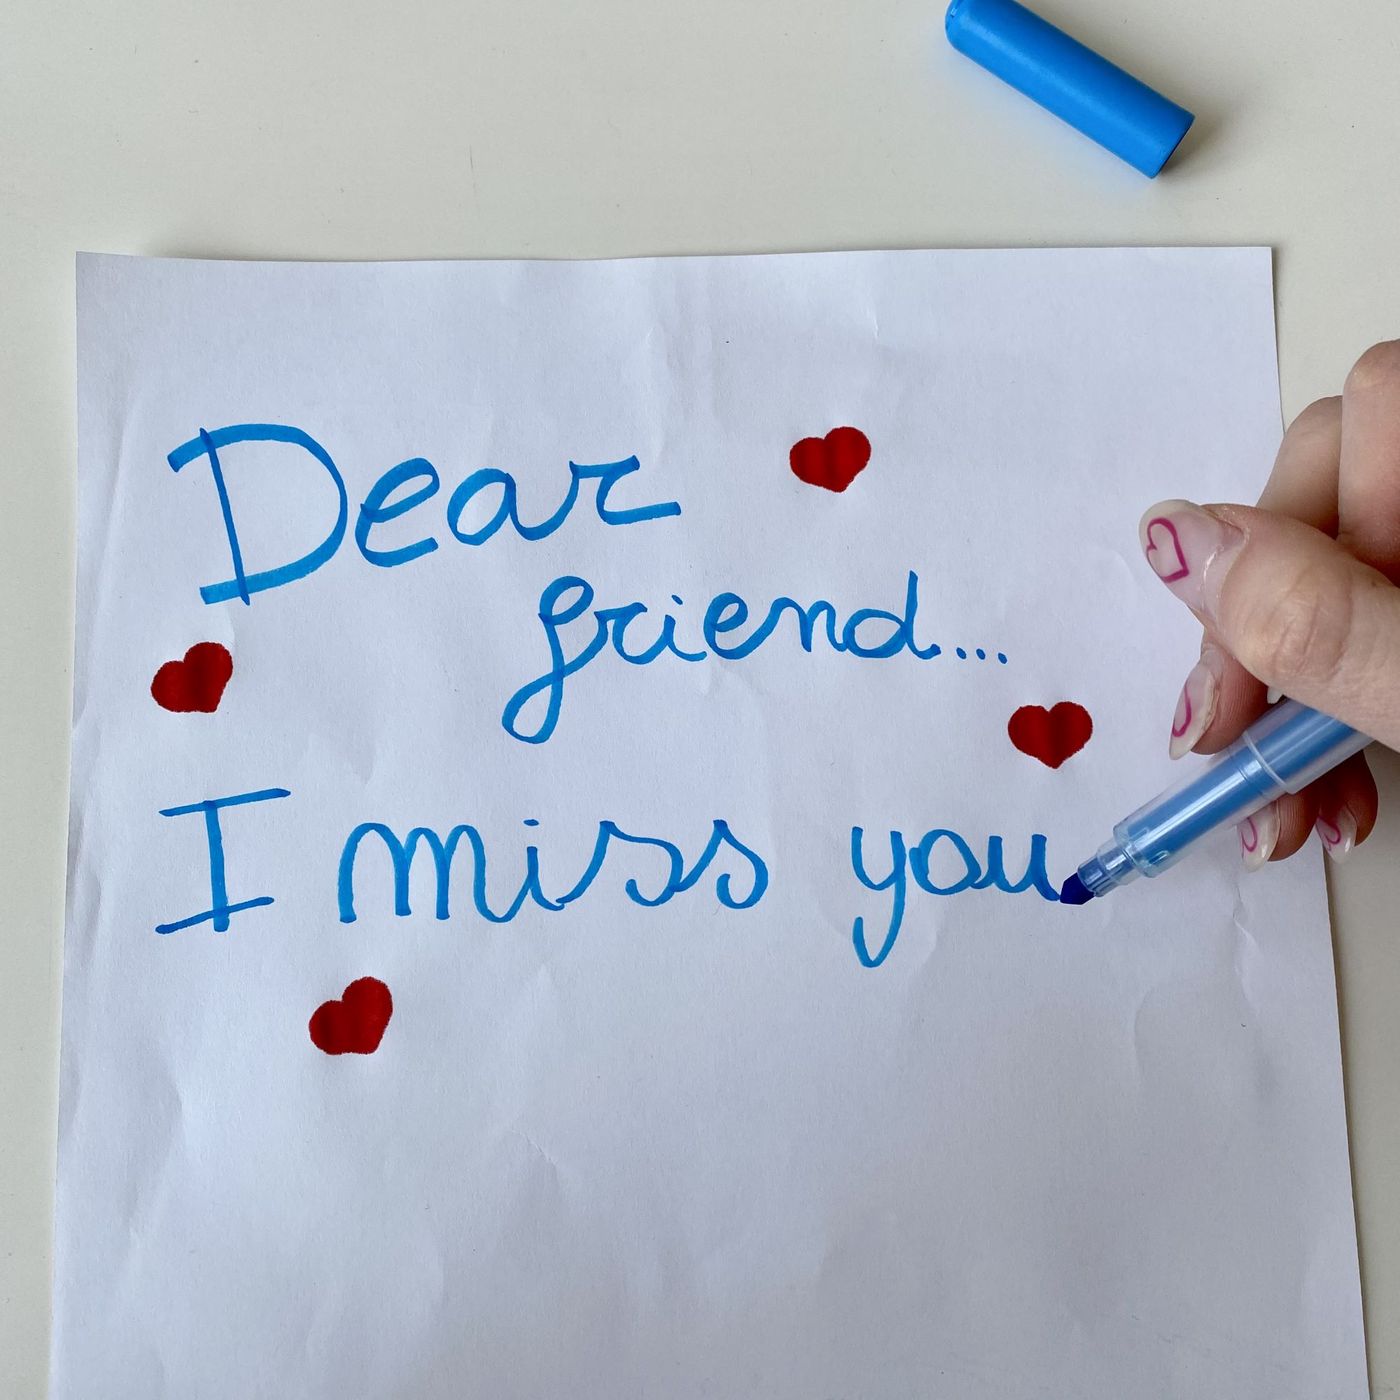 Dear
friend...
I miss you